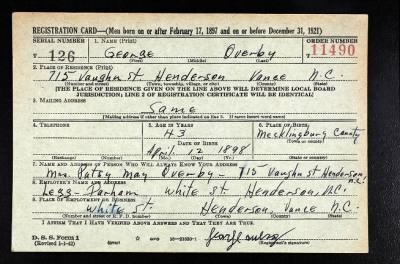 REGISTRATION CARD—(Men born on or after February 17, 1897 and on or before December 31, 1921)
SERIAL NUMBER 1. NAME (Print) ORDER NUMBER
T 126 George Overby 11490
(First) (Middle) (Last)
2. PLACE OF RESIDENCE (Print)
715 Vaughn St Henderson Vance N.C.
(Number and street) (Town, township, village, or city) (County) (State)
[THE PLACE OF RESIDENCE GIVEN ON THE LINE ABOVE WILL DETERMINE LOCAL BOARD
JURISDICTION; LINE 2 OF REGISTRATION CERTIFICATE WILL BE IDENTICAL]
3. MAILING ADDRESS
Same
[Mailing address if other than place indicated on line 2. If same insert word same]
4. TELEPHONE 5. AGE IN YEARS 6. PLACE OF BIRTH
43 Mecklingburg County
DATE OF BIRTH (Town or county)
April 12 1898
(Exchange) (Number) (Mo.) (Day) (Yr.) (State or country)
7. NAME AND ADDRESS OF PERSON WHO WILL ALWAYS KNOW YOUR ADDRESS
Mrs. Patsy May Overby - 715 Vaughn St Henderson N.C.
8. EMPLOYER'S NAME AND ADDRESS
Legg-Parham White St. Henderson, N.C.
9. PLACE OF EMPLOYMENT OR BUSINESS
White St. Henderson, Vance N.C.
(Number and street or R. F. D. number) (Town) (County) (State)
I AFFIRM THAT I HAVE VERIFIED ABOVE ANSWERS AND THAT THEY ARE TRUE.
D. S. S. Form 1
(Revised 1-1-42) (over) (Registrant's signature)